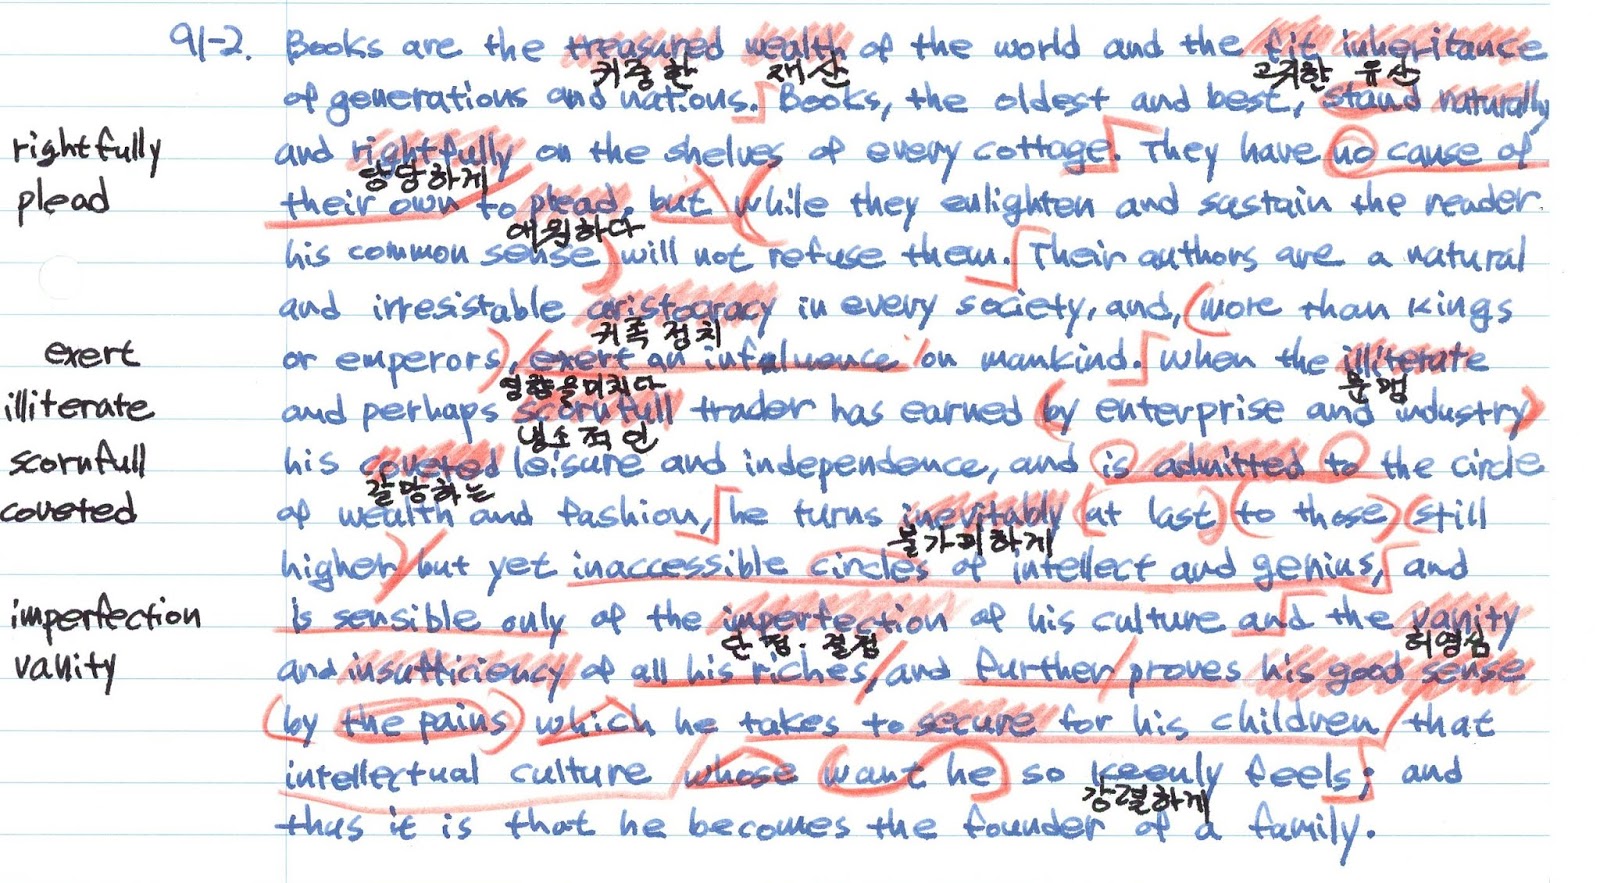 91-2. Books are the treasured wealth of the world and the fit inheritance
귀중한 재산 고귀한 유산
of generations and nations. Books, the oldest and best, stand naturally
rightfully and rightfully on the shelves of every cottage. They have no cause of
당당하게
plead their own to plead, but while they enlighten and sustain the reader
애원하다
his common sense will not refuse them. Their authors are a natural
and irresistable aristocracy in every society, and, more than kings
귀족 정치
exert or emperors, exert an infaluence on mankind. When the illiterate
영향을미치다 문맹
illiterate and perhaps scornfull trader has earned by enterprise and industry
냉소적인
scornfull his coveted leisure and independence, and is admitted to the circle
갈망하는
coveted of wealth and fashion, he turns inevitably at last to those still
불가피하게
higher but yet inaccessible circles of intellect and genius, and
imperfection is sensible only of the imperfection of his culture and the vanity
단점. 결점 허영심
vanity and insufficiency of all his riches, and further proves his good sense
by the pains which he takes to secure for his children that
intellectual culture whose want he so keenly feels; and
강렬하게
thus it is that he becomes the founder of a family.